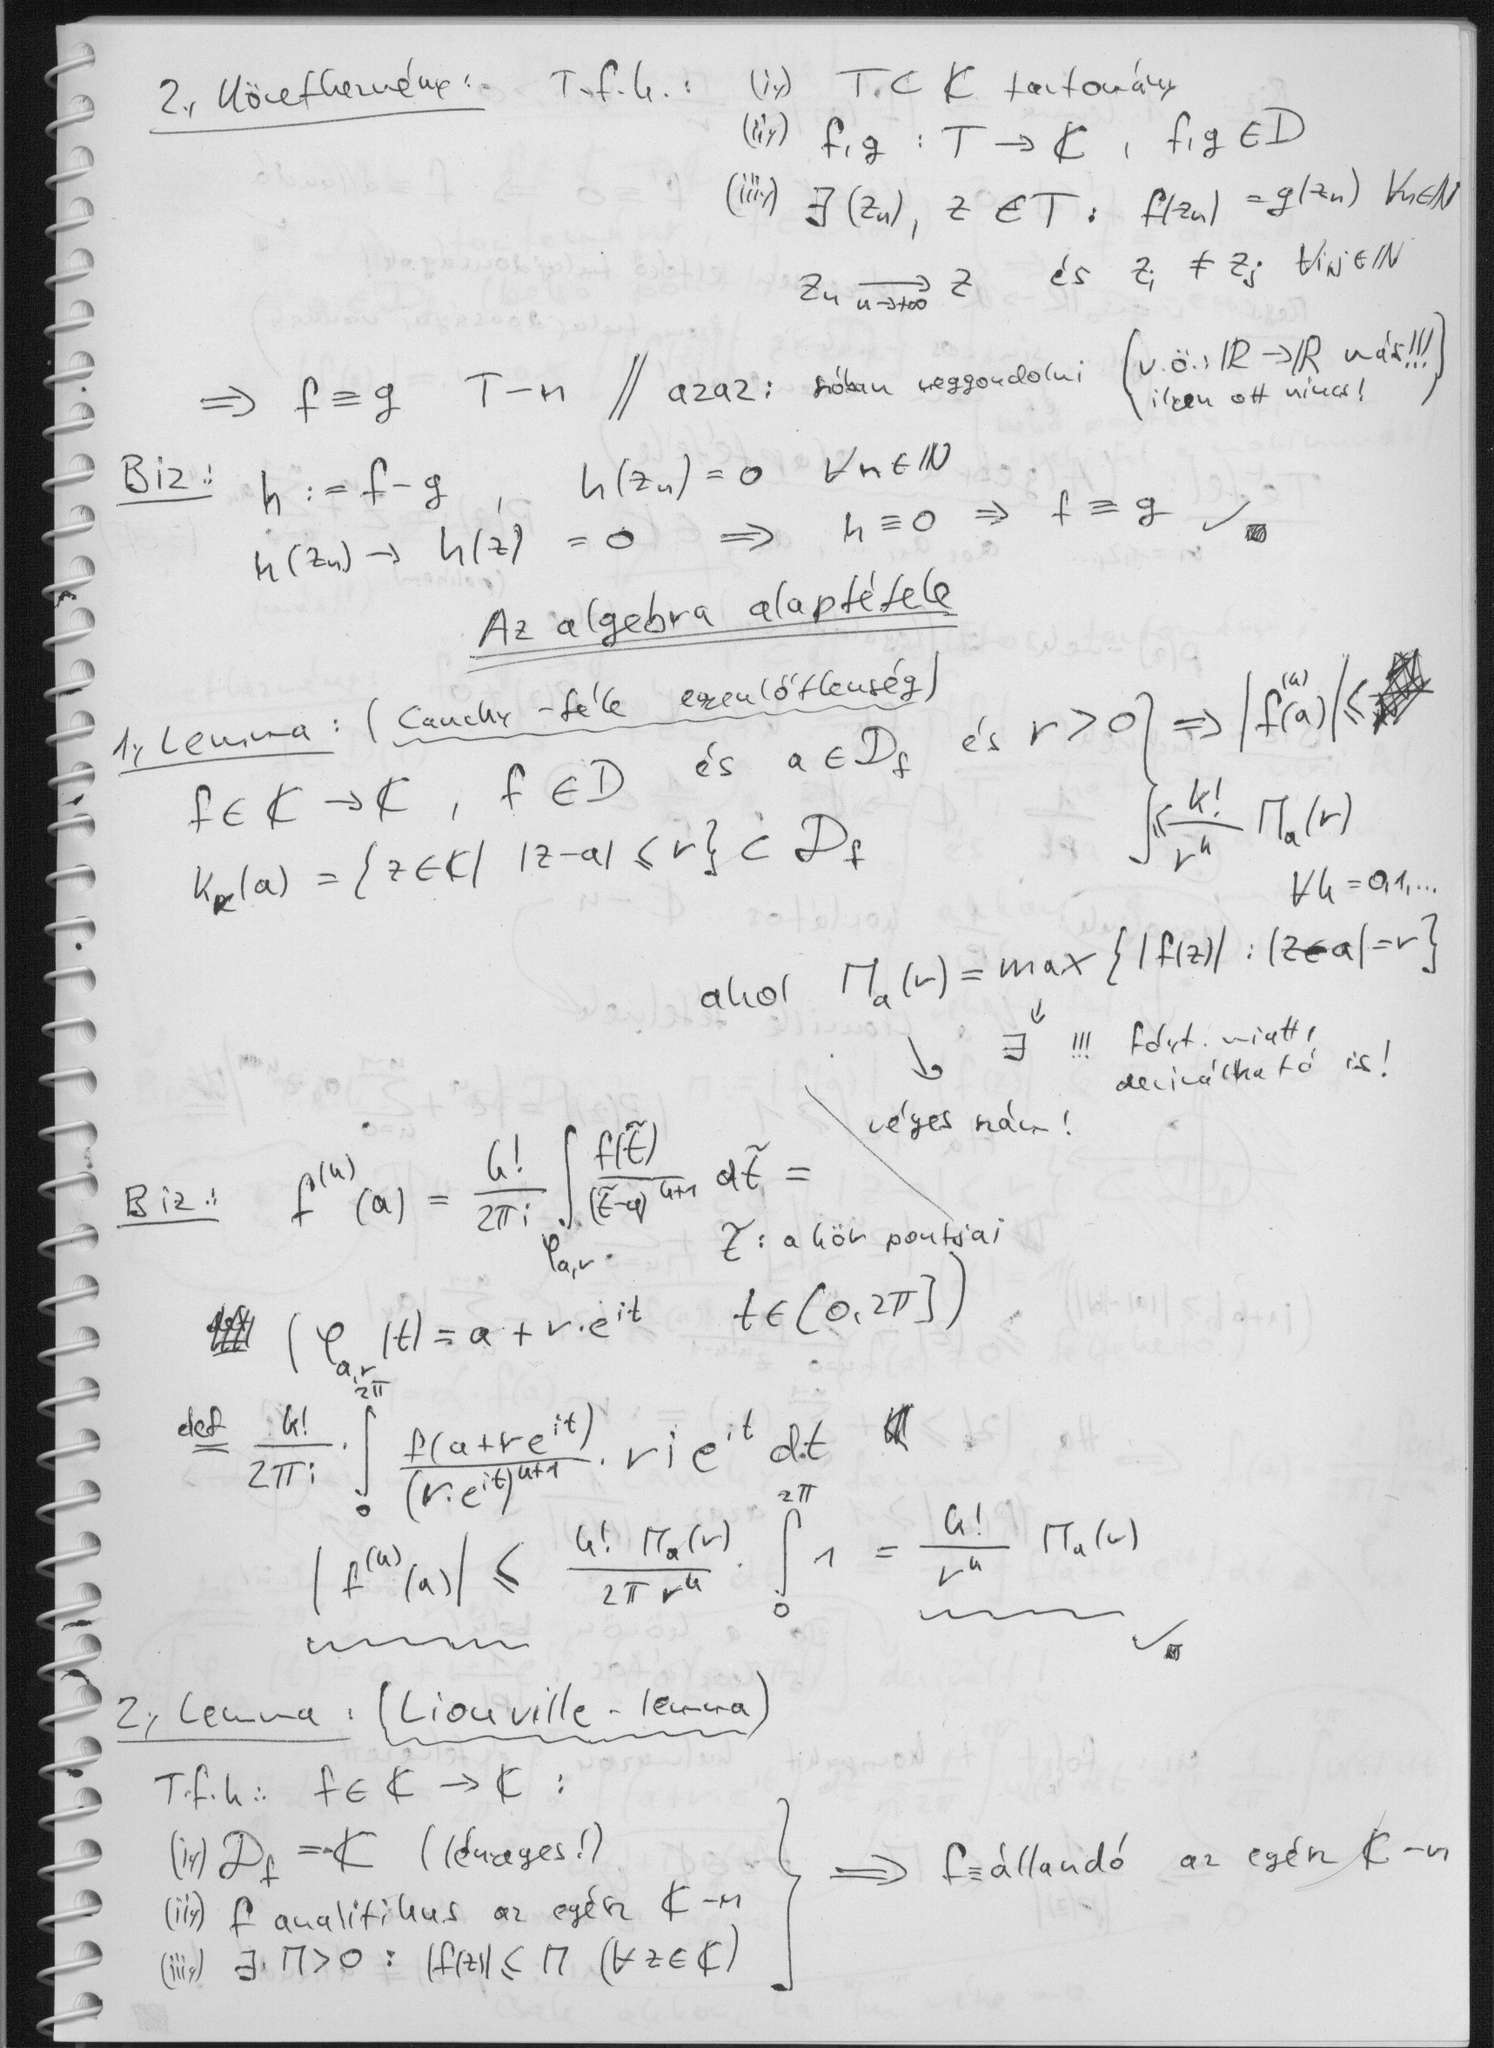 2., Következmény: T.f.h.: (i) T ⊂ ℂ tartomány
(ii) f, g : T → ℂ, f, g ∈ D
(iii) ∃ (zₙ), z ∈ T : f(zₙ) = g(zₙ) ∀n∈ℕ
zₙ →(n→+∞) z és zᵢ ≠ zⱼ ∀i,j∈ℕ
⇒ f ≡ g T-n // azaz: szóban meggondolni (v.ö.: ℝ→ℝ más!!!
ilyen ott nincs!)
Biz.: h := f-g, h(zₙ) = 0 ∀n∈ℕ
h(zₙ) → h(z) = 0 ⇒ h ≡ 0 ⇒ f ≡ g ✓
Az algebra alaptétele
1., Lemma: (Cauchy-féle egyenlőtlenség)
f ∈ ℂ → ℂ, f ∈ D és a ∈ D_f és r > 0 } ⇒ |f^(k)(a)| ≤
K_r(a) = {z∈ℂ | |z-a| ≤ r} ⊂ D_f
≤ k!/r^k M_a(r)
∀k = 0,1,...
ahol M_a(r) = max {|f(z)| : |z-a| = r}
∃ !!! folyt. miatt,
deriválható is!
véges szám!
Biz.: f^(k)(a) = k!/(2πi) ∫_{φ_{a,r}} f(z̃)/(z̃-a)^{k+1} dz̃ =
z̃ : a kör pontjai
(φ_{a,r}(t) = a + r·e^{it} t ∈ [0, 2π])
def= k!/(2πi) · ∫_0^{2π} f(a+re^{it})/(r·e^{it})^{k+1} · r i e^{it} dt
|f^(k)(a)| ≤ k! M_a(r)/(2π r^k) · ∫_0^{2π} 1 = k!/r^k M_a(r) ✓
2., Lemma: (Liouville-lemma)
T.f.h.: f ∈ ℂ → ℂ :
(i) D_f = ℂ (lényeges!)
(ii) f analitikus az egész ℂ-n
(iii) ∃ M>0 : |f(z)| ≤ M (∀z∈ℂ)
} ⇒ f ≡ állandó az egész ℂ-n